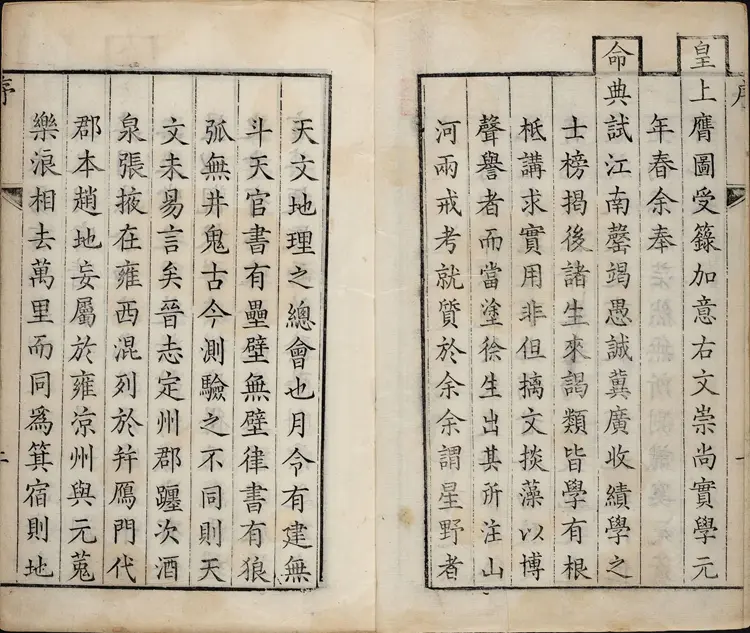 序
皇上膺圖受籙加意右文崇尚實學元
年春余奉
命典試江南罄竭愚誠冀廣收績學之
士榜揭後諸生來謁類皆學有根
柢講求實用非但摛文掞藻以博
聲譽者而當塗徐生出其所注山
河兩戒考就質於余余謂星野者
天文地理之總會也月令有建無
斗天官書有壘壁無壁律書有狼
弧無井鬼古今測驗之不同則天
文未易言矣晉志定州郡躔次酒
泉張掖在雍西混列於幷鴈門代
郡本趙地妄屬於雍涼州與元菟
樂浪相去萬里而同爲箕宿則地
序